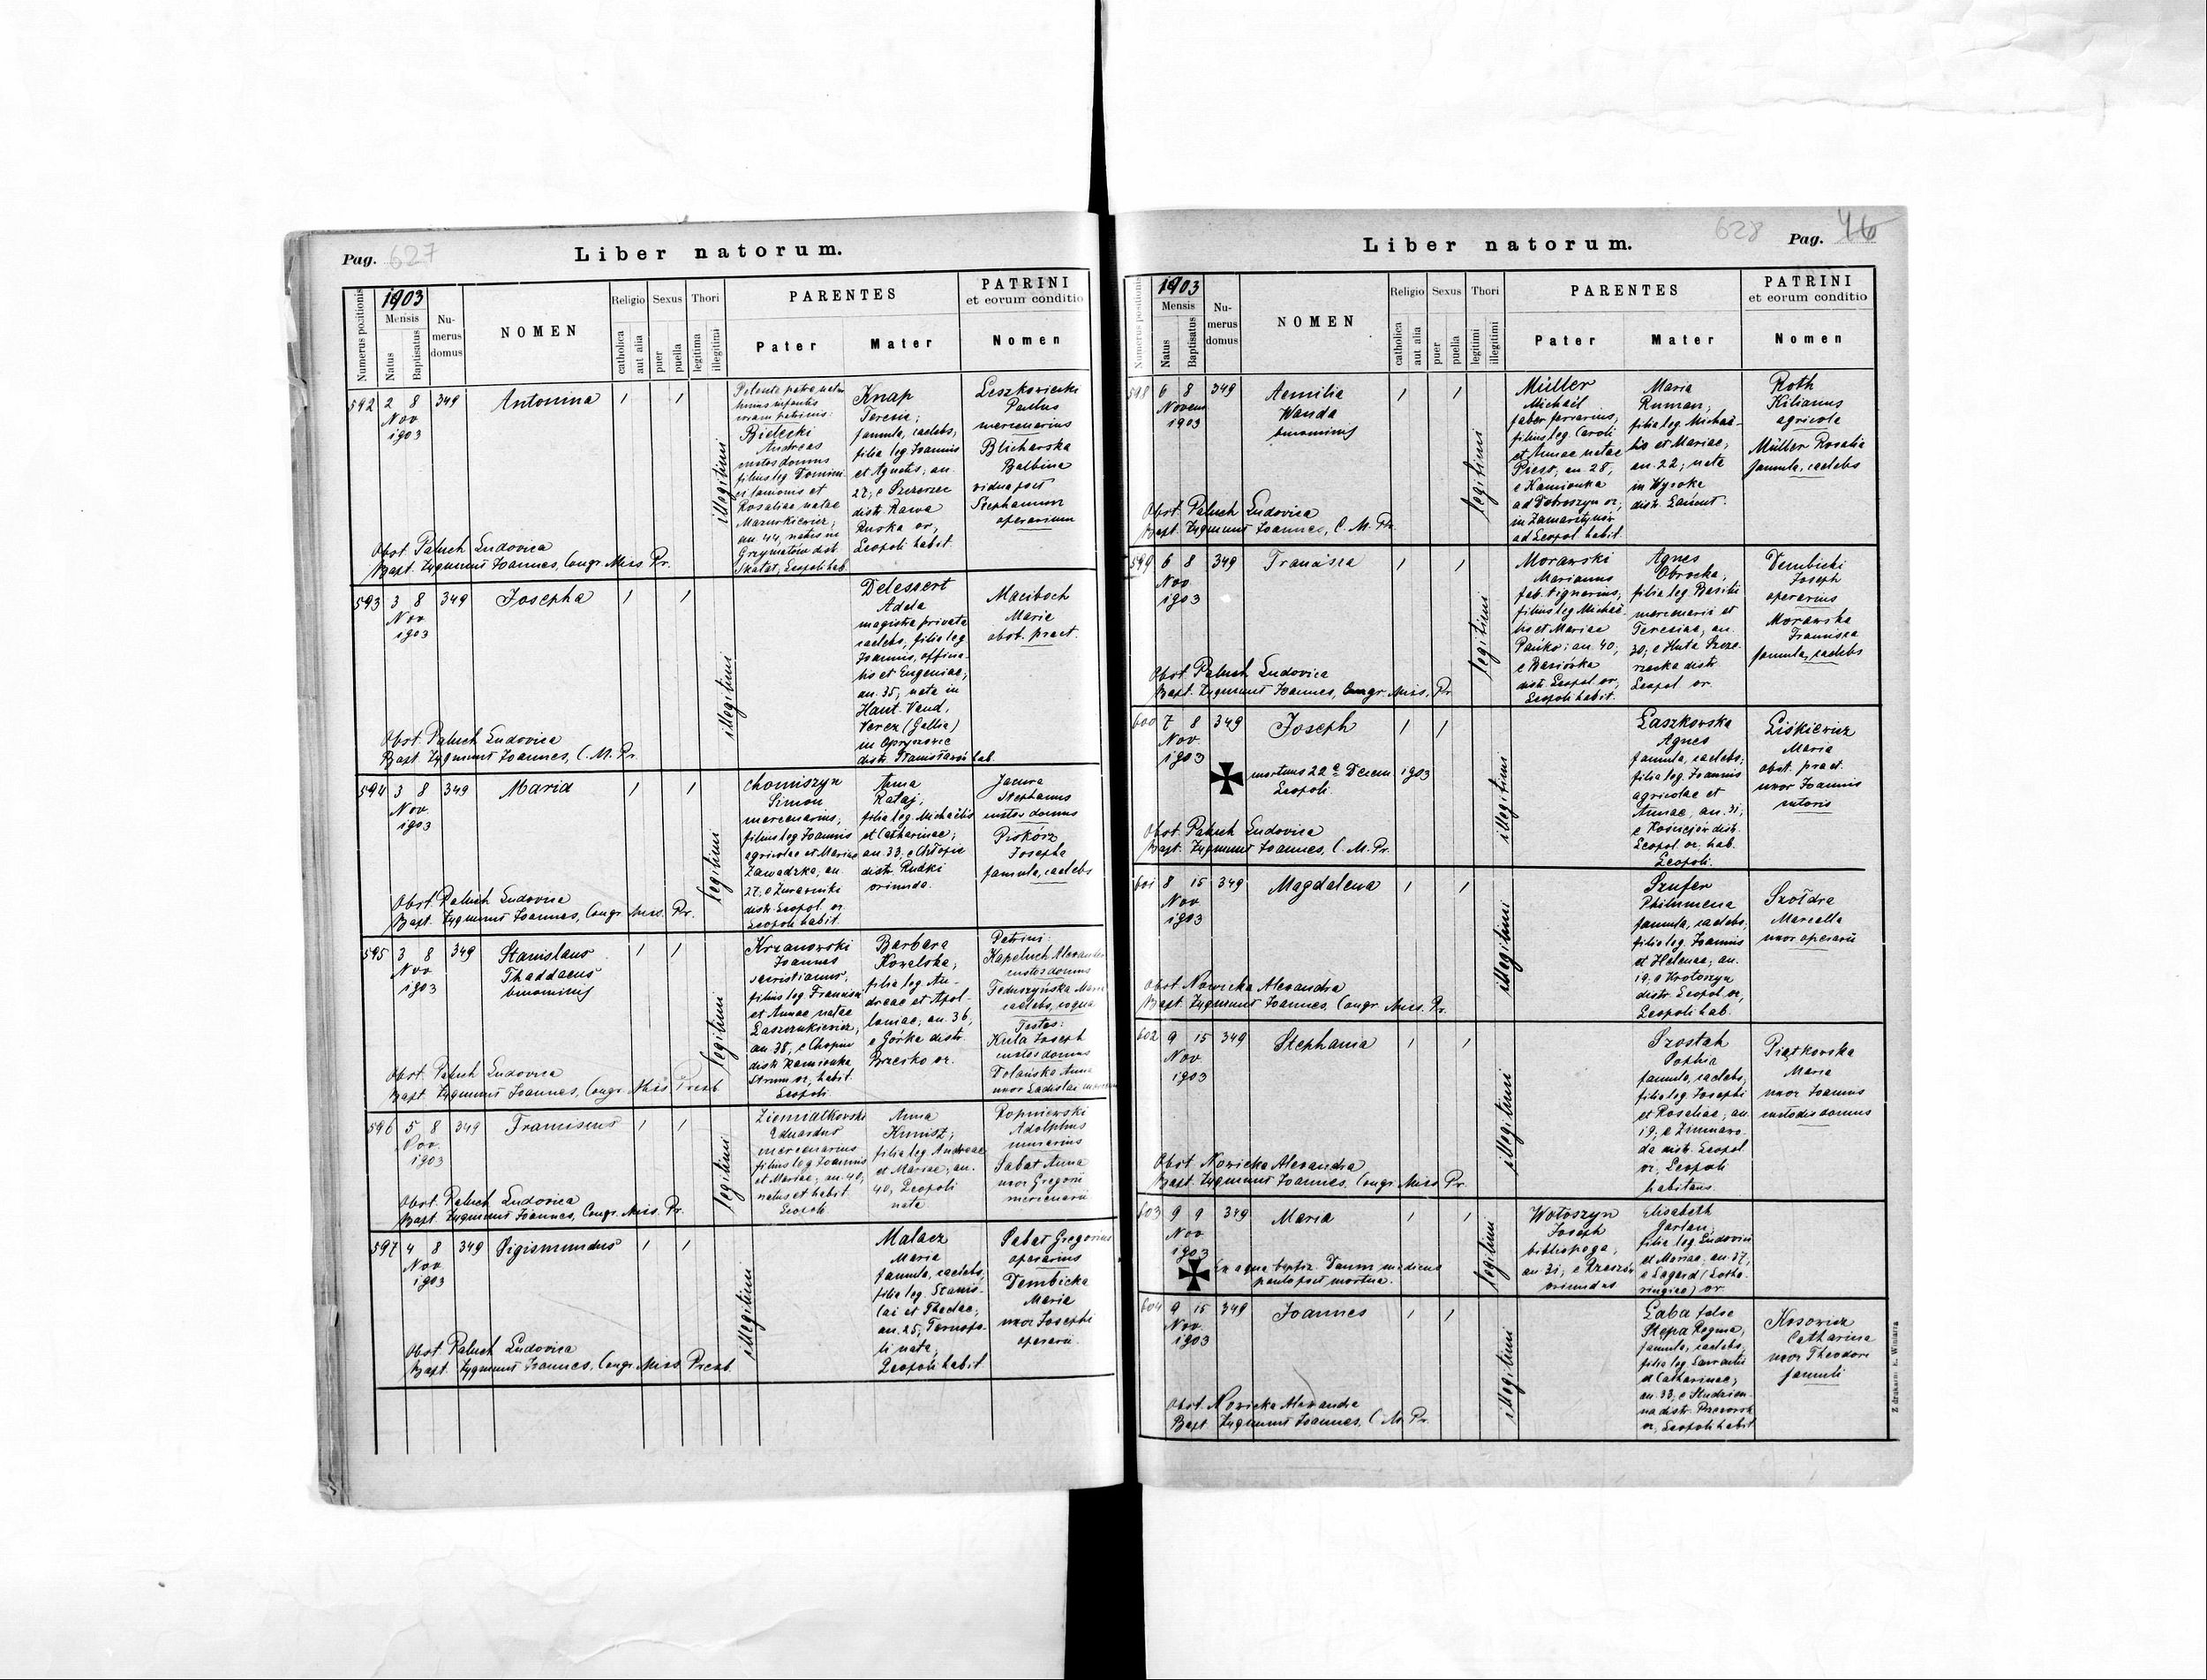 Pag. 627
Liber natorum.
Numerus positionis
1903
Mensis
Natus
Baptisatus
Nu-
merus
domus
NOMEN
Religio
catholica
aut alia
Sexus
puer
puella
Thori
legitima
illegitimi
PARENTES
Pater
Mater
PATRINI
et eorum conditio
Nomen
592 2 8 349 Antonina / /
Nov
1903
illegitimi
Bielecki
Andreas
custos domus
filius leg. Domini-
ci et
Rosaliae natae
Mazurkiewicz,
an. 44, natus in
Grzymałów distr.
Skałat, Leopoli hab.
Knap
Teresia,
famula, caelebs,
filia leg. Joannis
et Agnetis; an.
27; e Szczerzec
distr. Rawa
Ruska or.,
Leopoli habit.
Leszkowicki
Paulus
mercenarius
Blicharska
Balbina
vidua post
Stephanum
operarium
Obst. Paluch Ludovica
Bapt. Zygmunt Joannes, Congr. Miss. Pr.
593 3 8 349 Josepha / /
Nov
1903
illegitimi
Delessert
Adela
magistra privata
caelebs, filia leg.
Joannis, officia-
lis et Eugeniae,
an. 35, nata in
Haut. Vaud,
(Gallia)
in
distr. Stanisławów hab.
Maciboch
Maria
obst. pract.
Obst. Paluch Ludovica
Bapt. Zygmunt Joannes, C. M. Pr.
594 3 8 349 Maria / /
Nov
1903
legitimi
Chomiszyn
Simon
mercenarius,
filius leg. Joannis
agricolae et Mariae
Zawadzka, an.
27, e Żurawniki
distr. Leopol. or.
Leopoli habit.
Anna
Rataj,
filia leg. Michaëlis
et Catharinae;
an. 33; e Chłopie
distr. Rudki
oriunda.
Jacura
Stephanus
custos domus
Piskorz
Josepha
famula, caelebs
Obst. Paluch Ludovica
Bapt. Zygmunt Joannes, Congr. Miss. Pr.
595 3 8 349 Stanislaus / /
Nov
1903
Thaddaeus
binominis
legitimi
Krzanowski
Joannes
sacristianus,
filius leg. Francisci
et Annae natae
Laszczukiewicz,
an. 38, e
distr. Kamionka
Strum. or., habit.
Leopoli
Barbara
Kowalska,
filia leg. An-
dreae et Apol-
loniae; an. 36,
e Górka distr.
Brzesko or.
Patrini:
Kapeluch Alexander
custos domus
Feduszyńska Maria
caelebs, coqua
Testes:
Kula Joseph
custos domus
Dolańska Anna
uxor Ladislai
Obst. Paluch Ludovica
Bapt. Zygmunt Joannes, Congr. Miss Presb.
596 5 8 349 Franciscus / /
Nov.
1903
legitimi
Ziemiałkowski
Eduardus
mercenarius
filius leg. Joannis
et Mariae, an. 40,
natus et habit.
Leopoli
Anna
Kunisz,
filia leg. Andreae
et Mariae, an.
40, Leopoli
nata
Ropniewski
Adolphus
murarius
Sabat Anna
uxor Gregorii
mercenarii
Obst. Paluch Ludovica
Bapt. Zygmunt Joannes, Congr. Miss. Pr.
597 4 8 349 Sigismundus / /
Nov
1903
illegitimi
Malacz
Maria
famula, caelebs,
filia leg. Stanis-
lai et Theclae;
an. 25, Tarnopo-
li nata,
Leopoli habit.
Sabat Gregorius
operarius
Dembicka
Maria
uxor Josephi
operarii
Obst. Paluch Ludovica
Bapt. Zygmunt Joannes, Congr. Miss Presb.
628 Pag. 46
Liber natorum.
Numerus positionis
1903
Mensis
Natus
Baptisatus
Nu-
merus
domus
NOMEN
Religio
catholica
aut alia
Sexus
puer
puella
Thori
legitimi
illegitimi
PARENTES
Pater
Mater
PATRINI
et eorum conditio
Nomen
598 6 8 349 Aemilia / /
Novem
1903
Wanda
binominis
legitimi
Müller
Michaël
faber ferrarius,
filius leg. Caroli
et Annae natae
an. 28,
e Kamionka
ad Dobroszyn or.,
in Zamarstynów
ad Leopol. habit.
Maria
Ruman,
filia leg. Michaë-
lis et Mariae,
an. 22; nata
in Wysoka
distr. Łańcut.
Roth
Kilianus
agricola
Müller Rosalia
famula, caelebs
Obst. Paluch Ludovica
Bapt. Zygmunt Joannes, C. M. Pr.
599 6 8 349 Francisca / /
Nov
1903
legitimi
Morawski
Marianus
fab. lignarius,
filius leg. Michaë-
lis et Mariae
Pańko; an. 40,
e Basiówka
distr. Leopol or.,
Leopoli habit.
Agnes
Obrocka,
filia leg. Basilii
mercenarii et
Teresiae, an.
30; e Huta Szcze-
rzecka distr.
Leopol or.
Dembicki
Joseph
operarius
Morawska
Francisca
famula, caelebs
Obst. Paluch Ludovica
Bapt. Zygmunt Joannes, Congr. Miss. Pr
600 7 8 349 Joseph / /
Nov
1903
mortuus 22ª Decem. 1903
Leopoli.
illegitimi
Laszkowska
Agnes
famula, caelebs,
filia leg. Joannis
agricolae et
Annae, an. 31,
e Kościejów distr.
Leopol or. hab.
Leopoli.
Liśkiewicz
Maria
obst. pract.
uxor Joannis
sutoris
Obst. Paluch Ludovica
Bapt. Zygmunt Joannes, C. M. Pr.
601 8 15 349 Magdalena / /
Nov
1903
illegitimi
Szufer
Philumena
famula, caelebs,
filia leg. Joannis
et Helenae, an.
19; e Krotoszyn
distr. Leopol or.,
Leopoli hab.
Szołdra
Marcella
uxor operarii
Obst. Nowicka Alexandra
Bapt. Zygmunt Joannes, Congr. Miss. Pr.
602 9 15 349 Stephania / /
Nov
1903
illegitimi
Szostak
Sophia
famula, caelebs,
filia leg. Josephi
et Rosaliae, an.
19; e Zimnawo-
da distr. Leopol
or., Leopoli
habitans.
Piątkowska
Maria
uxor Joannis
custodis domus
Obst. Nowicka Alexandra
Bapt. Zygmunt Joannes, Congr. Miss Pr.
603 9 9 349 Maria / /
Nov
1903
ex aqua baptiz. Daum medicus
paulo post mortua.
legitimi
Wołoszyn
Joseph
bibliopega,
an. 31; e Rzeszów
oriundus
Elisabeth
Garlan,
filia leg. Ludovici
et Mariae, an. 37,
e Lagard (Lotha-
ringiae) or.
604 9 15 349 Joannes / /
Nov.
1903
illegitimi
Łaba false
Stepa Regina,
famula, caelebs,
filia leg. Laurentii
et Catharinae;
an. 33, e Studzian-
na distr. Przeworsk
or., Leopoli habit.
Kosowicz
Catharina
uxor Theodori
famuli
Obst. Nowicka Alexandra
Bapt. Zygmunt Joannes, C. M. Pr.
Z drukarni E. Winiarza